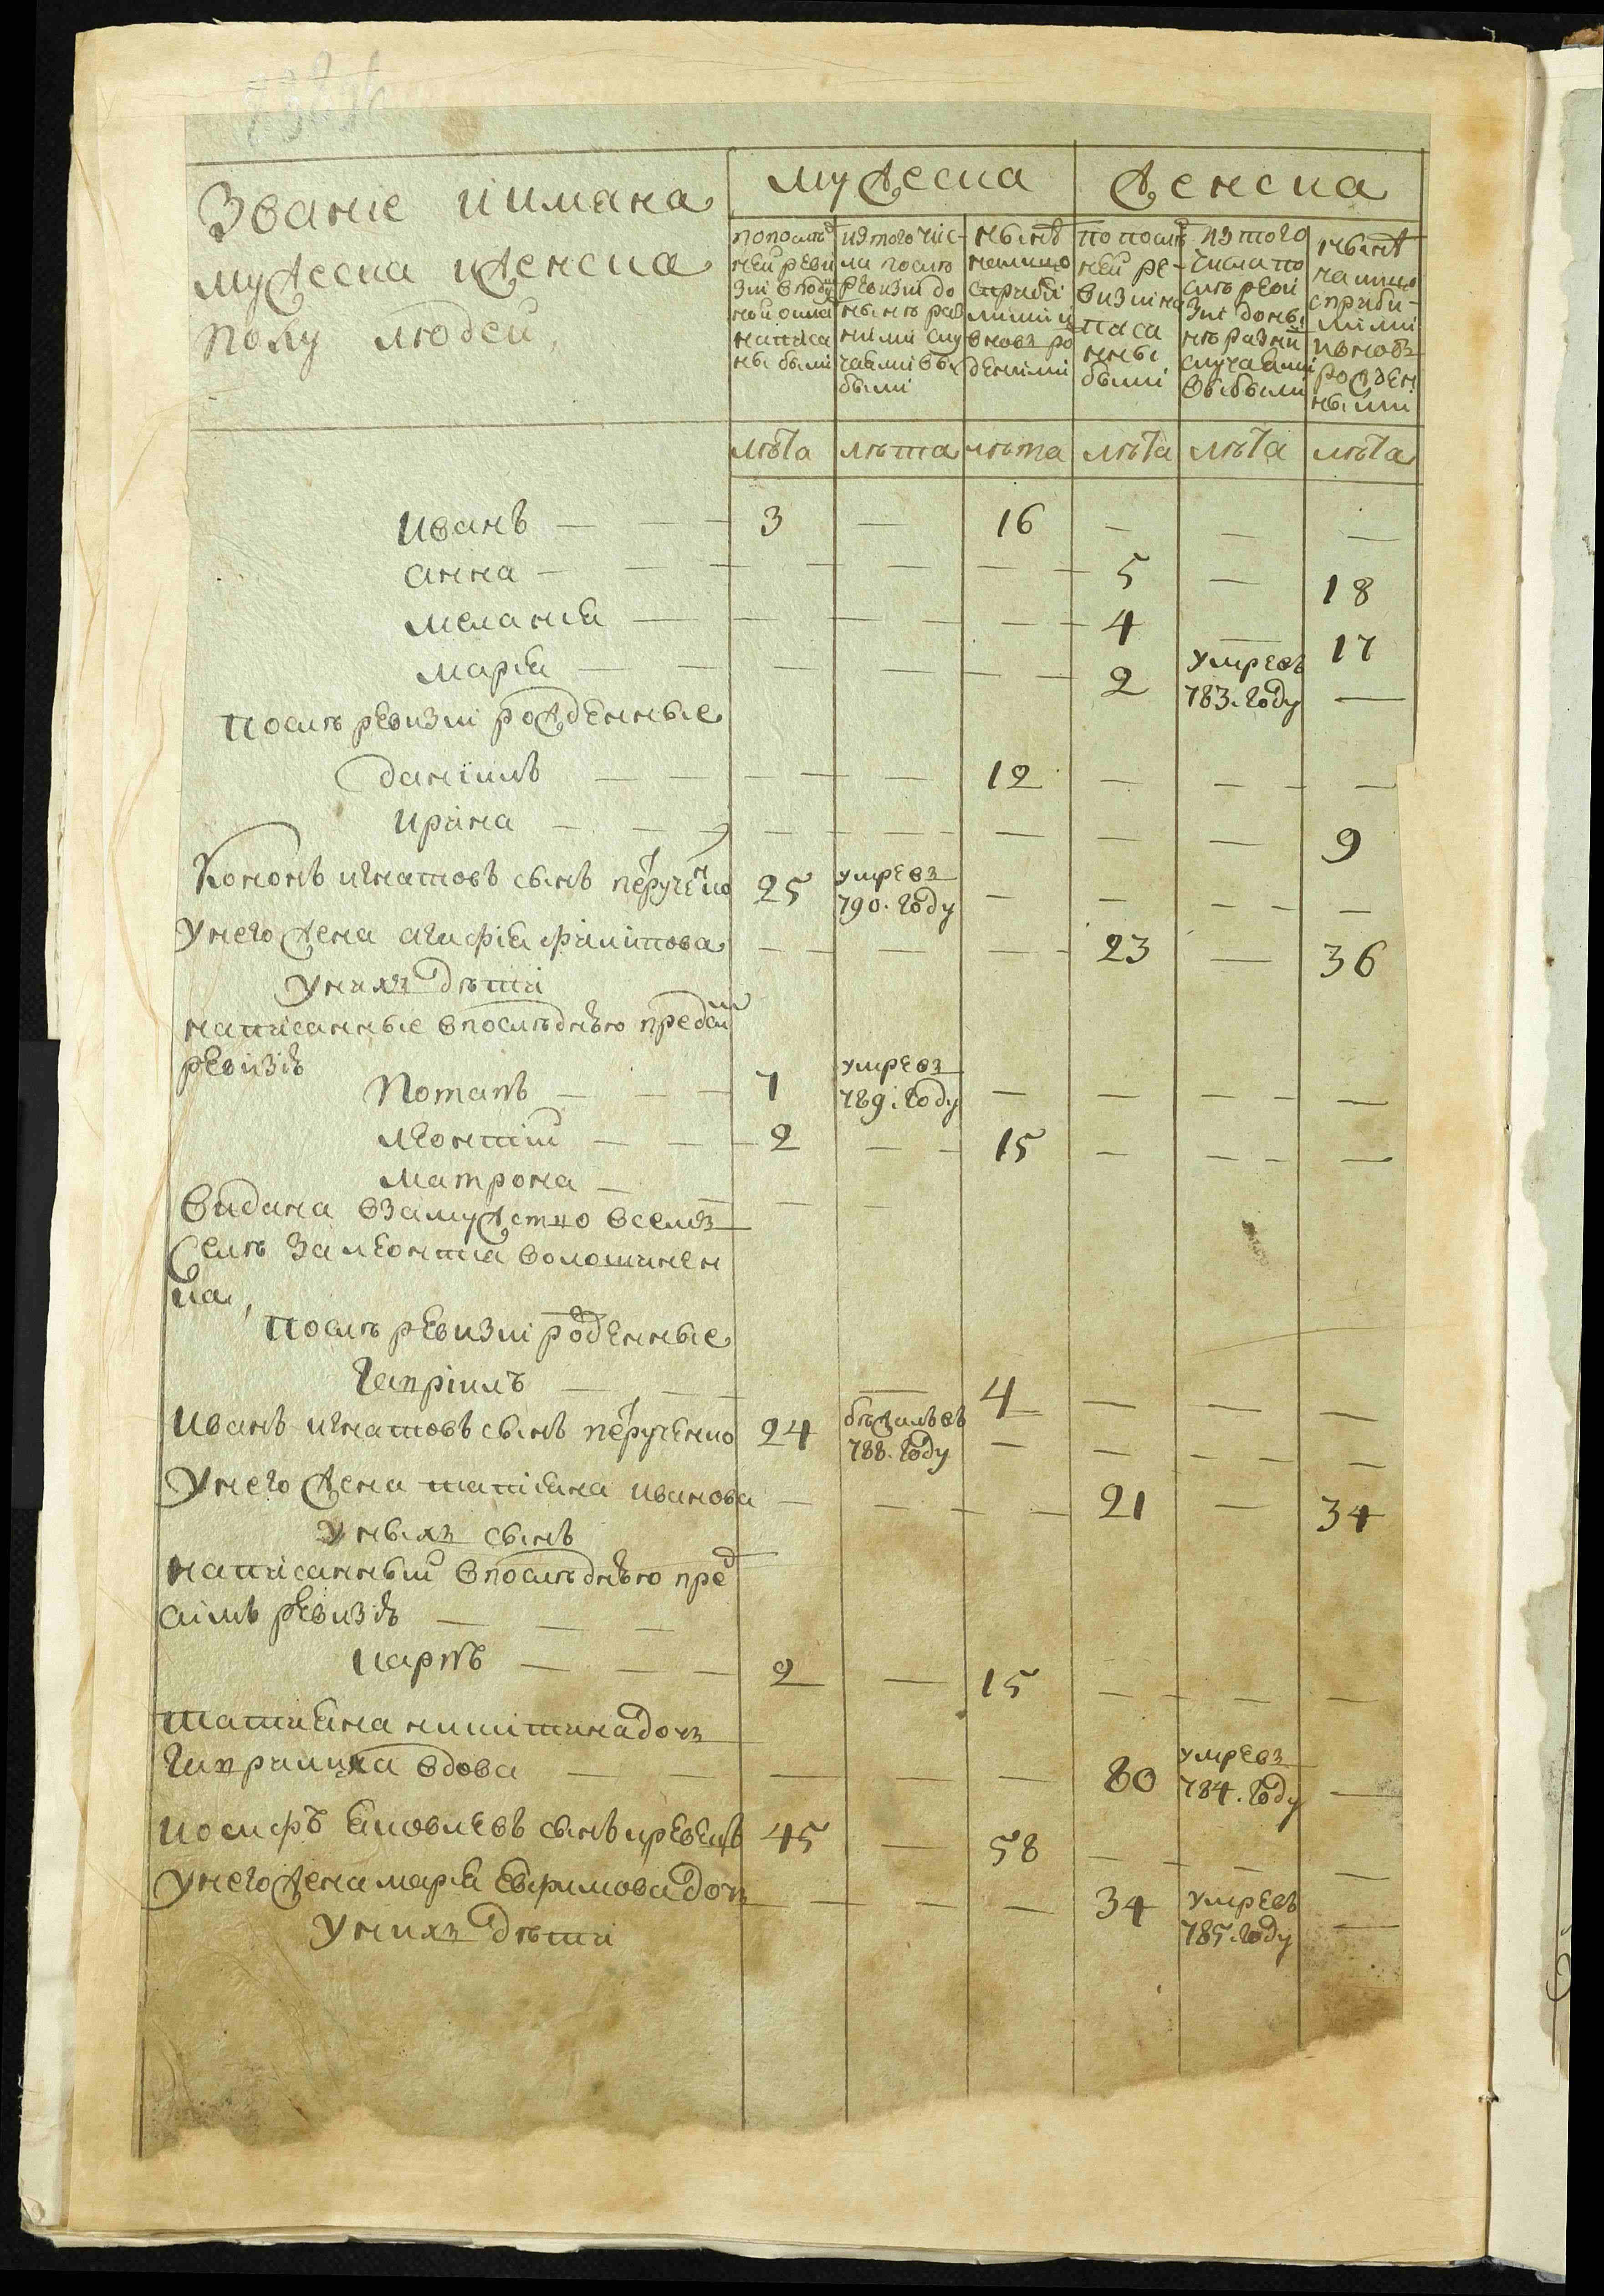 Званіе иимяна
мужеска иженска
полу людеи,
мужеска
женска
попослѣд
неи реви
зіи вподу
нои окла
написа
ны были
изтого чис-
ла послѣ
ревизіи до
нынѣ раз
ними слу
чаями вы
были
нынѣ
налицо
сприбы
лими и
вновь ро
деними
по послѣ
неи ре-
визіи на
писа
нны
были
изтого
числа по
слѣ реви
зіи доны
нѣ разни
случаями
выбыли
нынѣ
налицо
сприбы-
лими
ивновь
рожден
ными
лѣта лѣта лѣта лѣта лѣта лѣта
Иванъ — — — 3 — 16 — — —
анна — — — — — — 5 — 18
меланія — — — — — 4 — 17
марія — — — — — 2 умре въ 783. году —
послѣ ревизіи рожденные
даніилъ — — — — — 12 — — —
ирина — — — — — — — — 9
Кононъ игнатовъ сынъ перученко 25 умре въ 790. году — — — —
Унего жена агафія филипова — — — 23 — 36
Унихъ дѣти
написанные впослѣднѣю пред сим
ревизіѣ
Потапъ — — — 7 умре въ 789. году — — — —
леонтіи — — — 2 — — 15 — — —
матрона — — —
видана взамужство вселѣ
Селѣ за леонтія волошинен
ка,
послѣ ревизіи роденные
Гаврііилъ — — — — 4 — — —
Иванъ игнатовъ сынъ перученко 24 бѣжалъ въ 788. году — — — —
Унего жена татіяна иванова — — — — 21 — 34
Уныхъ сынъ
написанныи впослѣднѣю пред
симъ ревизіѣ — — —
карпъ — — — 2 — 15 — — —
Татияна никитина дочь
Гаврилиха вдова — — — — — 80 умре въ 784. году —
иосифъ яковлевъ сынъ кревецъ 45 — 58 — — —
Унего жена марія ефимова дочь — — — 34 умре въ 785. году —
Унихъ дѣти